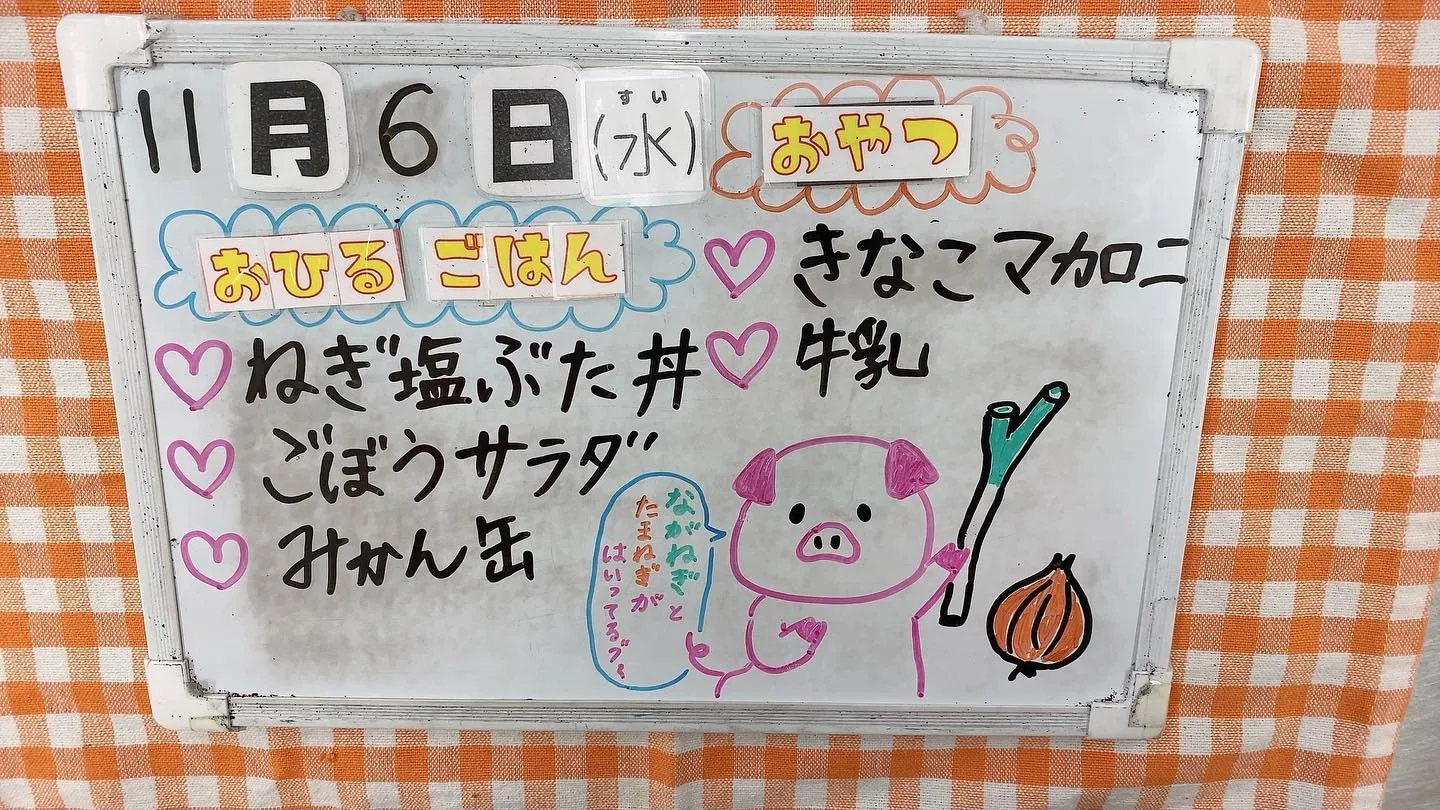 11月6日(水)
すい
おひるごはん
ねぎ塩ぶた丼
ごぼうサラダ
みかん缶
おやつ
きなこマカロニ
牛乳
ながねぎと
たまねぎが
はいってるブ〜